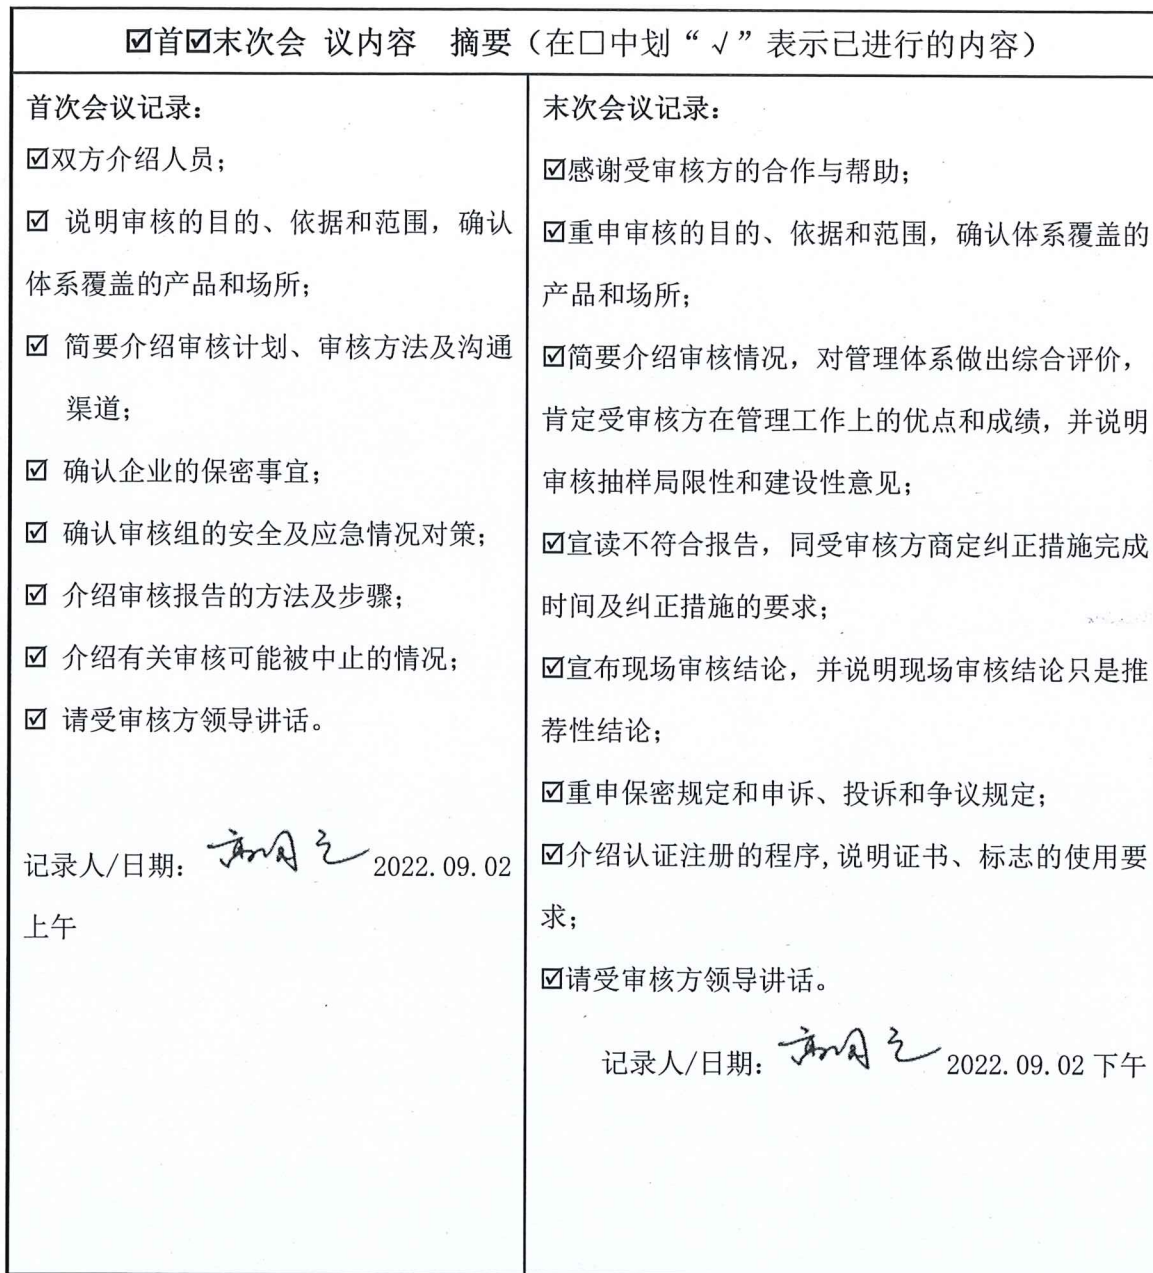 ☑首☑末次会 议内容 摘要（在□中划“√”表示已进行的内容）
首次会议记录：
☑双方介绍人员；
☑ 说明审核的目的、依据和范围，确认
体系覆盖的产品和场所；
☑ 简要介绍审核计划、审核方法及沟通
渠道；
☑ 确认企业的保密事宜；
☑ 确认审核组的安全及应急情况对策；
☑ 介绍审核报告的方法及步骤；
☑ 介绍有关审核可能被中止的情况；
☑ 请受审核方领导讲话。
记录人/日期： 2022.09.02
上午
末次会议记录：
☑感谢受审核方的合作与帮助；
☑重申审核的目的、依据和范围，确认体系覆盖的
产品和场所；
☑简要介绍审核情况，对管理体系做出综合评价，
肯定受审核方在管理工作上的优点和成绩，并说明
审核抽样局限性和建设性意见；
☑宣读不符合报告，同受审核方商定纠正措施完成
时间及纠正措施的要求；
☑宣布现场审核结论，并说明现场审核结论只是推
荐性结论；
☑重申保密规定和申诉、投诉和争议规定；
☑介绍认证注册的程序,说明证书、标志的使用要
求；
☑请受审核方领导讲话。
记录人/日期： 2022.09.02 下午